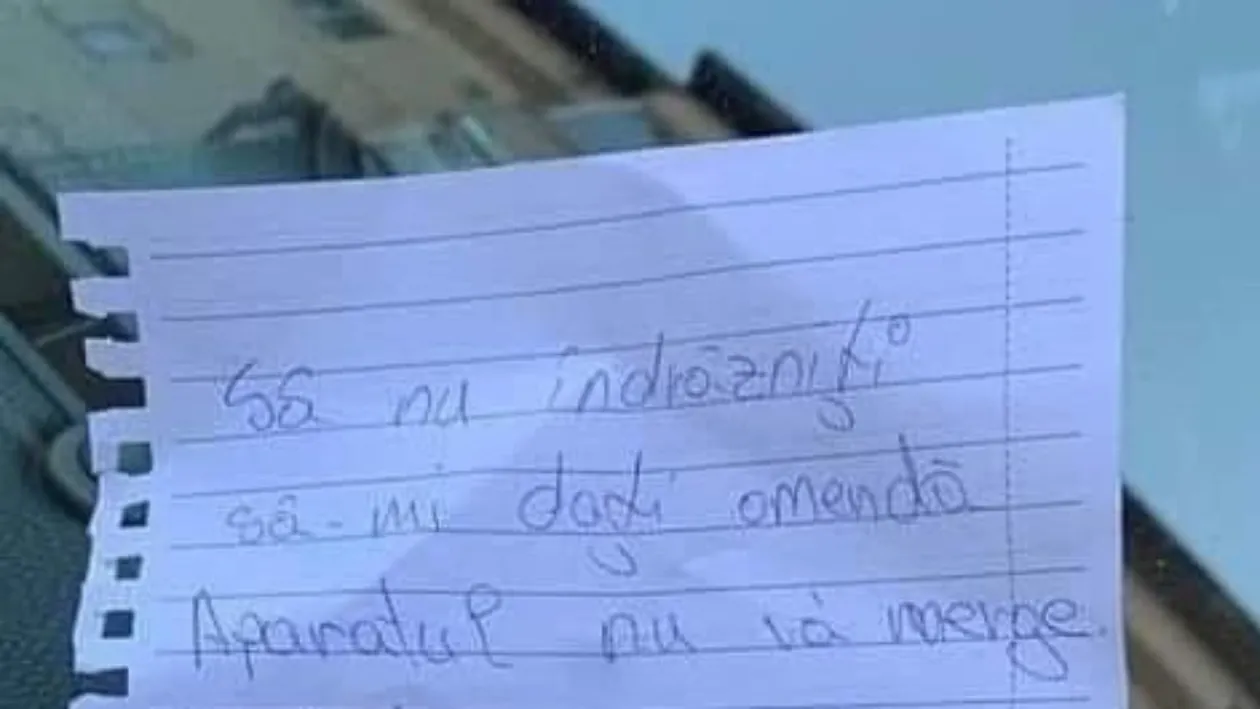 Să nu îndrăzniți
să-mi dați amendă
Aparatul nu vă merge.